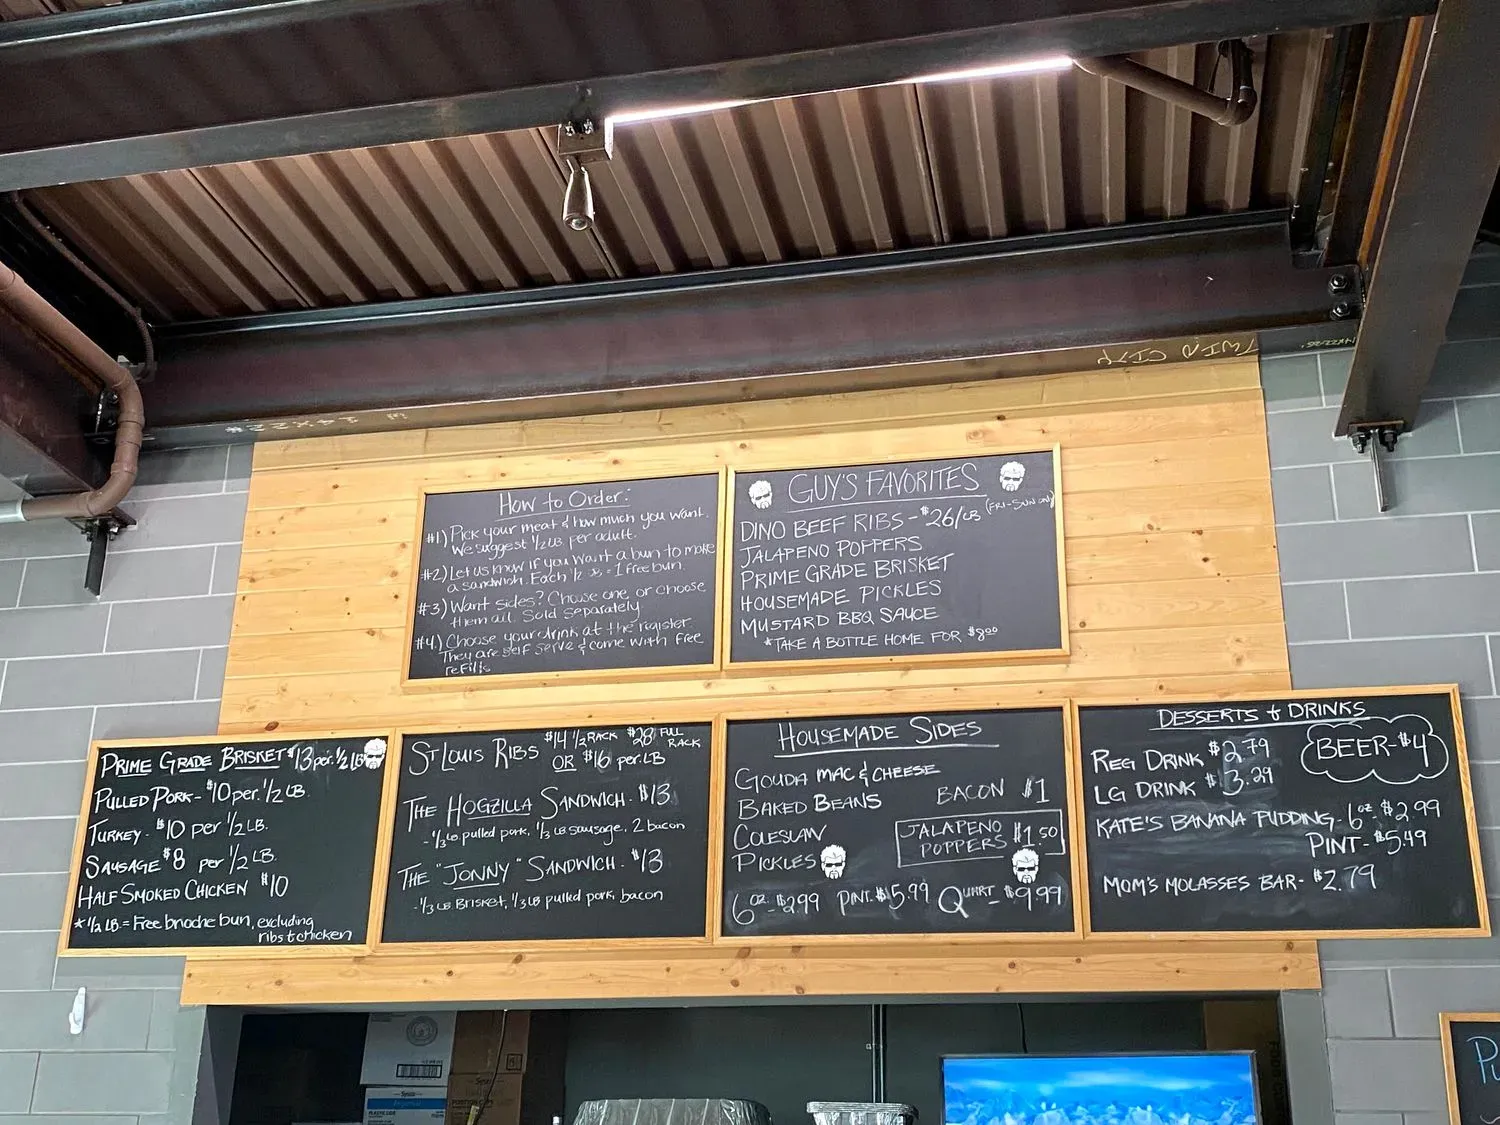 TWIN CITY
How to Order:
#1) Pick your meat & how much you want.
We suggest 1/2 LB per adult.
#2) Let us know if you want a bun to make
a sandwich. Each 1/2 LB = 1 free bun.
#3) Want sides? Choose one or choose
them all. Sold separately.
#4.) Choose your drink at the register.
They are self serve & come with free
refills
GUY'S FAVORITES
DINO BEEF RIBS - $26/LB (FRI-SUN ONLY)
JALAPENO POPPERS
PRIME GRADE BRISKET
HOUSEMADE PICKLES
MUSTARD BBQ SAUCE
*TAKE A BOTTLE HOME FOR $8.00
PRIME GRADE BRISKET $13 per. 1/2 LB
PULLED PORK - $10 per. 1/2 LB.
TURKEY - $10 per 1/2 LB.
SAUSAGE $8 per 1/2 LB.
HALF SMOKED CHICKEN $10
*1/2 LB = Free brioche bun, excluding
ribs & chicken
ST LOUIS RIBS $14 1/2 RACK $28 FULL RACK
OR $16 per LB
THE HOGZILLA SANDWICH - $13
- 1/3 LB. pulled pork, 1/3 LB sausage, 2 bacon
THE "JONNY" SANDWICH - $13
- 1/3 LB BRISKET, 1/3 LB pulled pork, bacon
HOUSEMADE SIDES
GOUDA MAC & CHEESE
BAKED BEANS
COLESLAW
PICKLES
BACON $1
JALAPENO
POPPERS $1.50
6 OZ. - $2.99 PINT. $5.99 QUART - $9.99
DESSERTS & DRINKS
REG DRINK $2.79
LG DRINK $3.29
BEER - $4
KATE'S BANANA PUDDING - 6 OZ - $2.99
PINT - $5.49
MOM'S MOLASSES BAR - $2.79
Sysco